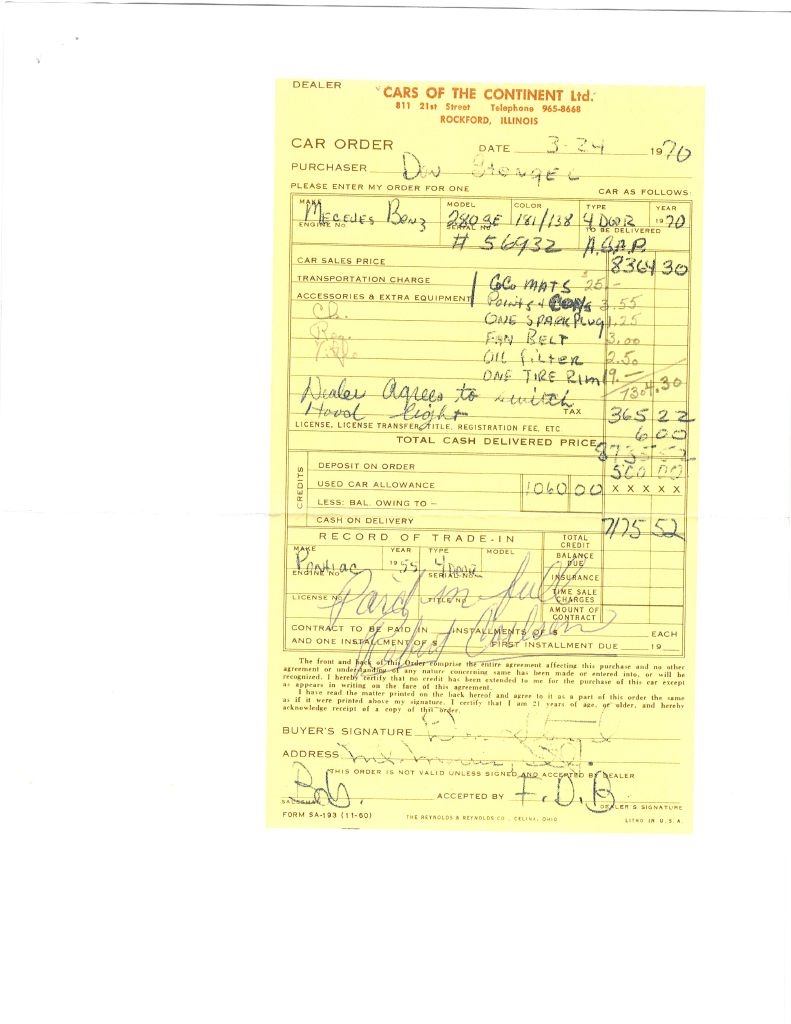 DEALER
CARS OF THE CONTINENT Ltd.
811 21st Street Telephone 965-8668
ROCKFORD, ILLINOIS
CAR ORDER DATE 3-24 1970
PURCHASER Don
PLEASE ENTER MY ORDER FOR ONE CAR AS FOLLOWS:
MAKE MODEL COLOR TYPE YEAR
Mecedes Benz 280SE 181/138 4 DOOR 1970
ENGINE No SERIAL No TO BE DELIVERED
# 56932 A.S.A.P.
CAR SALES PRICE 8364 30
TRANSPORTATION CHARGE CoCo MATS $25.-
ACCESSORIES & EXTRA EQUIPMENT Points & 3.55
Ck. ONE SPARK Plug 1.25
Reg. FAN BELT 3.00
Title OIL FILTER 2.50
ONE TIRE Rim 19.-
7304.30
Dealer Agrees to switch
Hood light TAX 365 22
LICENSE, LICENSE TRANSFER, TITLE, REGISTRATION FEE, ETC. 6 00
TOTAL CASH DELIVERED PRICE 8735 52
CREDITS
DEPOSIT ON ORDER 500 00
USED CAR ALLOWANCE 1060 00 X X X X X
LESS: BAL. OWING TO —
CASH ON DELIVERY 7175 52
RECORD OF TRADE-IN TOTAL CREDIT
MAKE YEAR TYPE MODEL BALANCE DUE
Pontiac 1955 4 DOOR
ENGINE No SERIAL No INSURANCE
LICENSE No TITLE No TIME SALE CHARGES
Paid in full
AMOUNT OF CONTRACT
CONTRACT TO BE PAID IN INSTALLMENTS OF $ EACH
Robert Carlson
AND ONE INSTALLMENT OF $ FIRST INSTALLMENT DUE 19
The front and back of this Order comprise the entire agreement affecting this purchase and no other
agreement or understanding of any nature concerning same has been made or entered into, or will be
recognized. I hereby certify that no credit has been extended to me for the purchase of this car except
as appears in writing on the face of this agreement.
I have read the matter printed on the back hereof and agree to it as a part of this order the same
as if it were printed above my signature. I certify that I am 21 years of age, or older, and hereby
acknowledge receipt of a copy of this order.
BUYER'S SIGNATURE
ADDRESS
THIS ORDER IS NOT VALID UNLESS SIGNED AND ACCEPTED BY DEALER
ACCEPTED BY F.D.B
SALESMAN DEALER'S SIGNATURE
FORM SA-193 (11-60) THE REYNOLDS & REYNOLDS CO., CELINA, OHIO LITHO IN U.S.A.